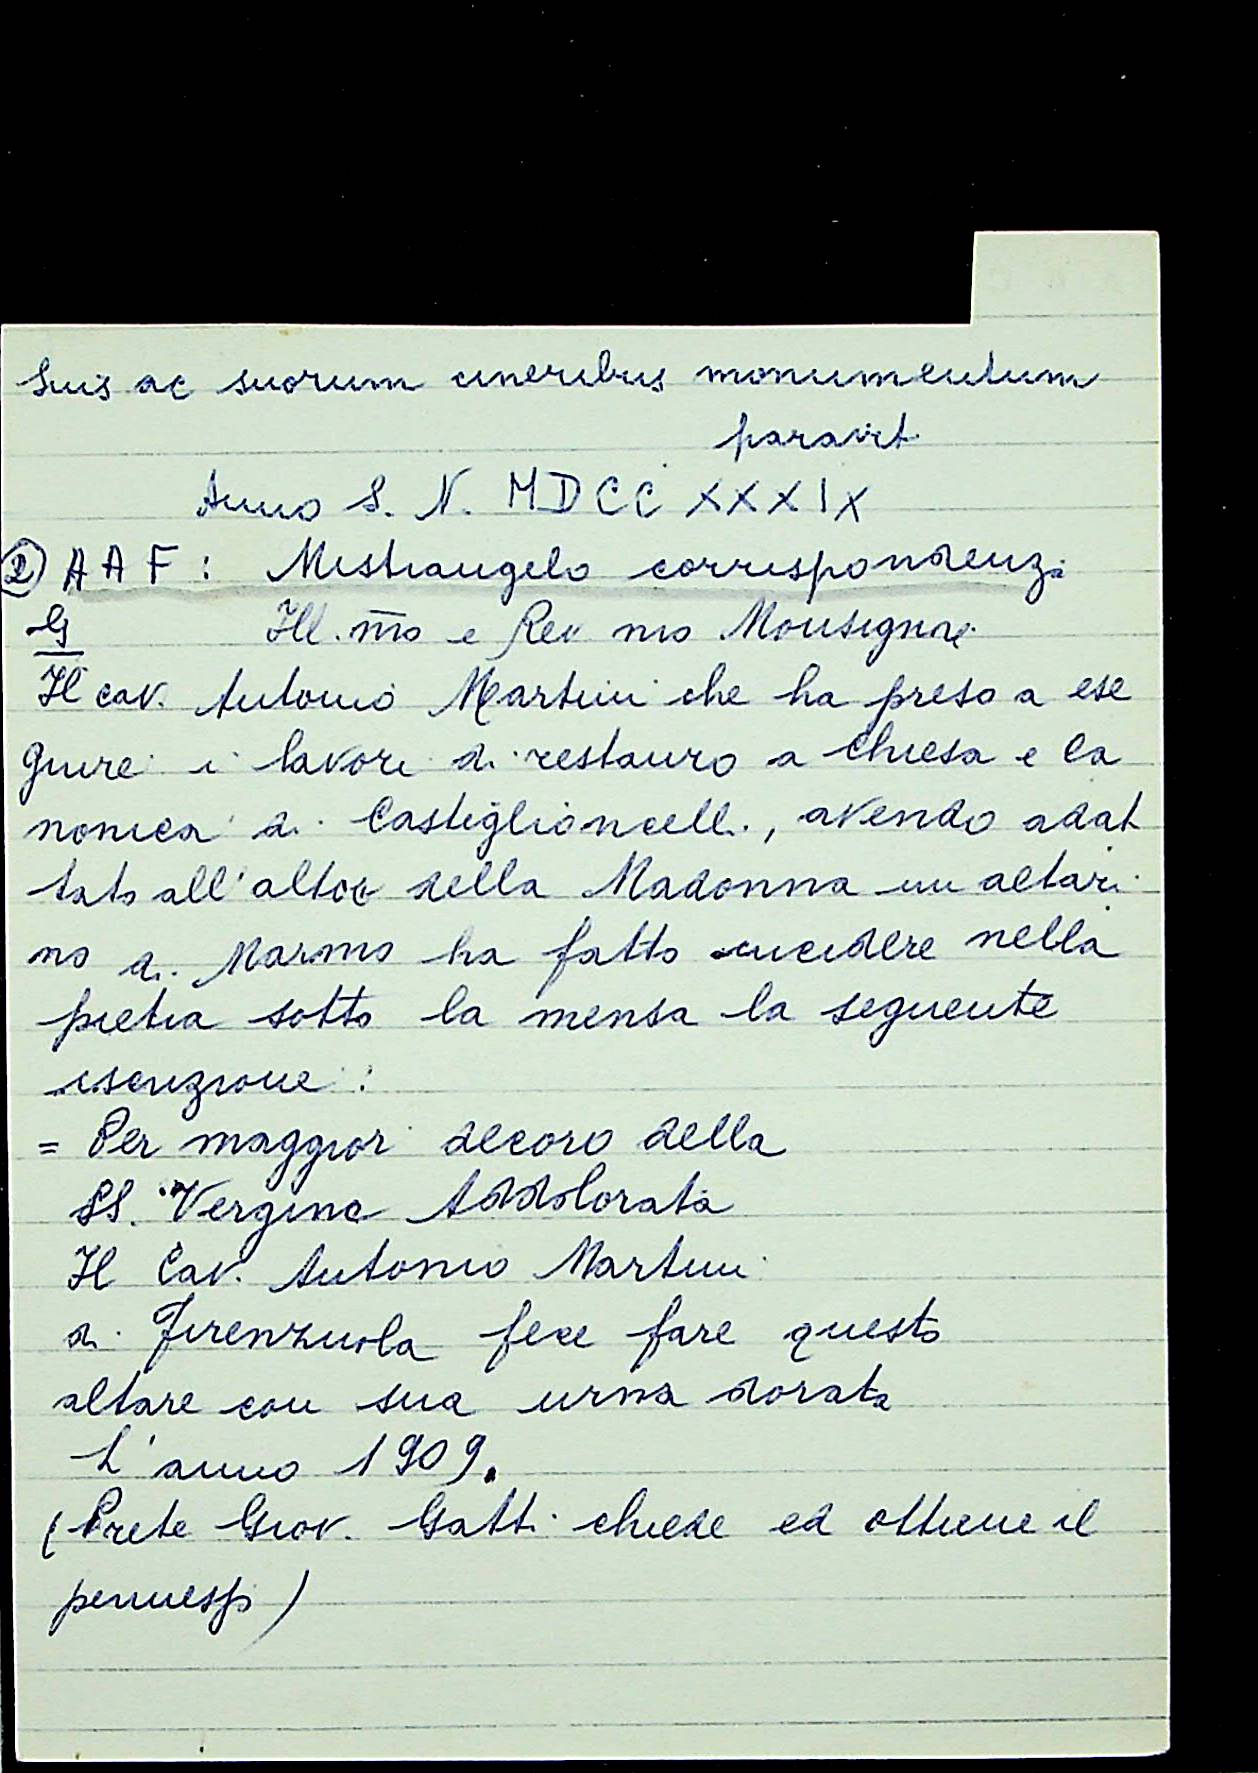 Suis ac suorum cineribus monumentum
paravit
Anno S. N. MDCCXXXIX
② AAF: Mistrangelo corrispondenza
G Ill.m̅o e Rev mo Monsignore
Il cav. Antonio Martini che ha preso a ese
guire i lavori di restauro a chiesa e ca
nonica di Castiglioncelli, avendo adat
tato all'altare della Madonna un altari
no di Marmo ha fatto incidere nella
pietra sotto la mensa la seguente
iscrizione:
= Per maggior decoro della
SS. Vergine Addolorata
Il Cav. Antonio Martini
di Firenzuola fece fare questo
altare con sua urna dorata
L'anno 1909.
(Prete Giov. Gatti chiede ed ottiene il
permesso)